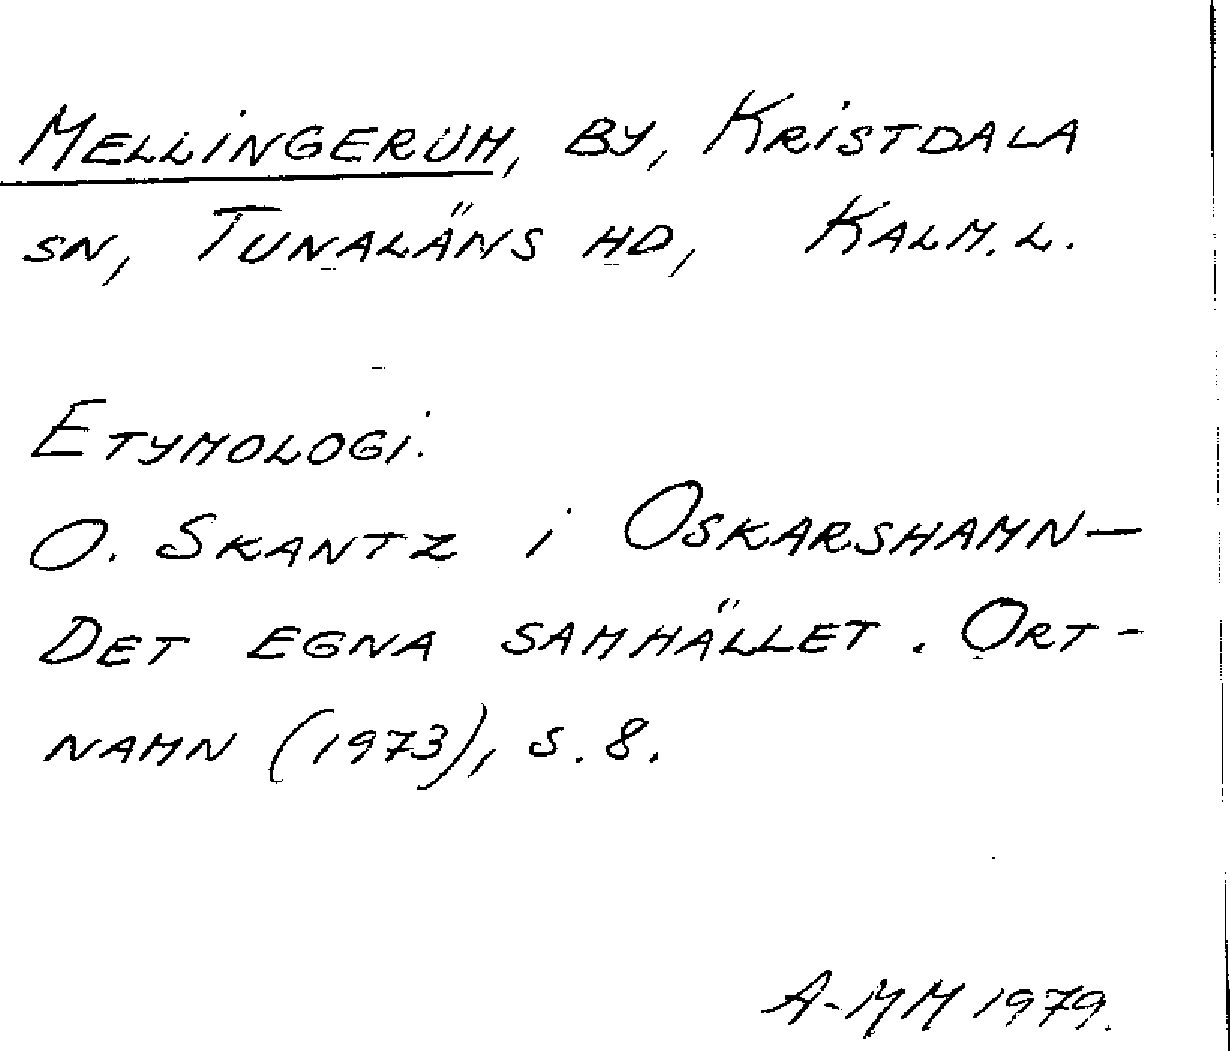 Mellingerum, by, Kristdala
sn, Tunaläns hd, Kalm. l.
Etymologi.
O. Skantz i Oskarshamn–
Det egna samhället. Ort-
namn (1973), s. 8.
A-MM 1979.